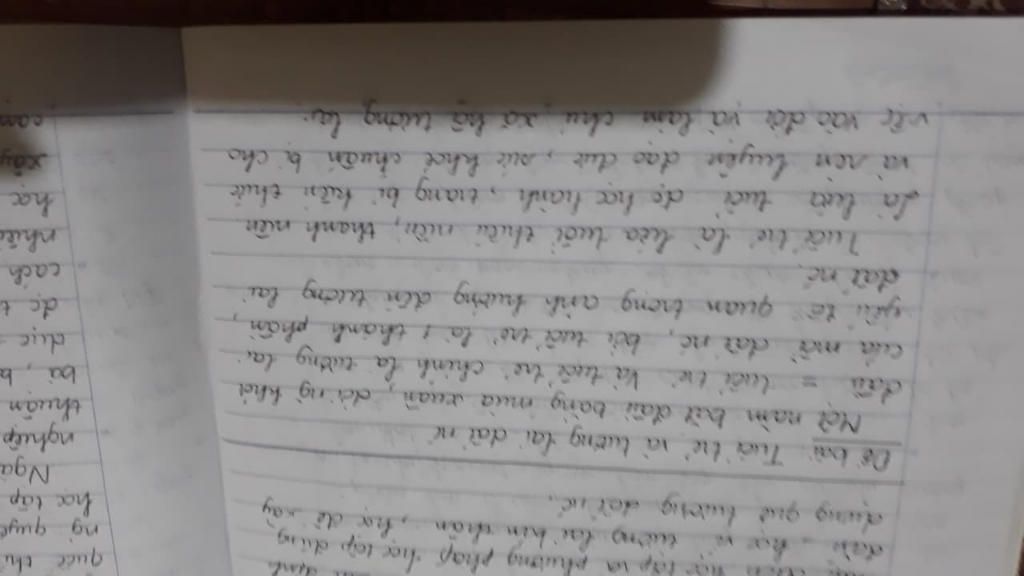 đích học tập và phương pháp học tập đúng
đắn, học vì tương lai bản thân, học để xây
dựng quê hương đất nc.
Đề bài Tuổi trẻ và tương lai đất nc
Một năm bắt đầu bằng mùa xuân, đời ng khởi
đầu = tuổi trẻ. Và tuổi trẻ chính là tương lai
của mỗi đất nc, bởi tuổi trẻ là 1 thành phần,
yếu tố quan trọng ảnh hưởng đến tương lai
đất nc.
Tuổi trẻ là lứa tuổi thiếu niên, thanh niên
Là lứa tuổi đc học hành, trang bị kiến thức
và rèn luyện đạo đức, sức khoẻ chuẩn bị cho
việc vào đời và làm chủ xã hội tương lai.
học tập
nghiệp
thuận
bá, b
dục
đc t
cách
học
xây